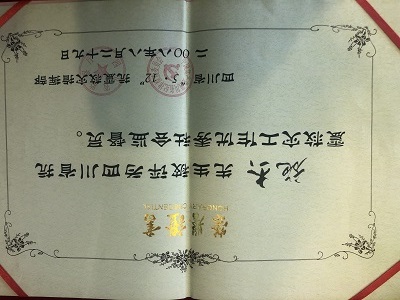 榮譽證書
先生被评为四川省抗
震救灾工作优秀社会监督员。
四川省“5·12”抗震救灾指挥部
二00八年八月二十九日